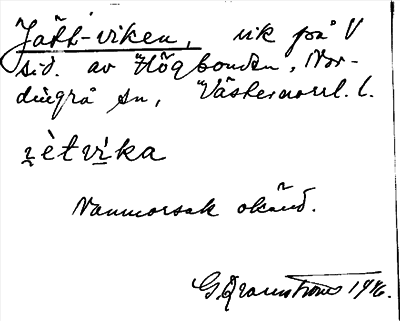 Jätt-viken, vik på V
sid. av Högbonden, Nor-
dingrå sn, Västernorrl. l.
i̯ètvìka
Namnorsak okänd.
G. Qvarnström 1946.